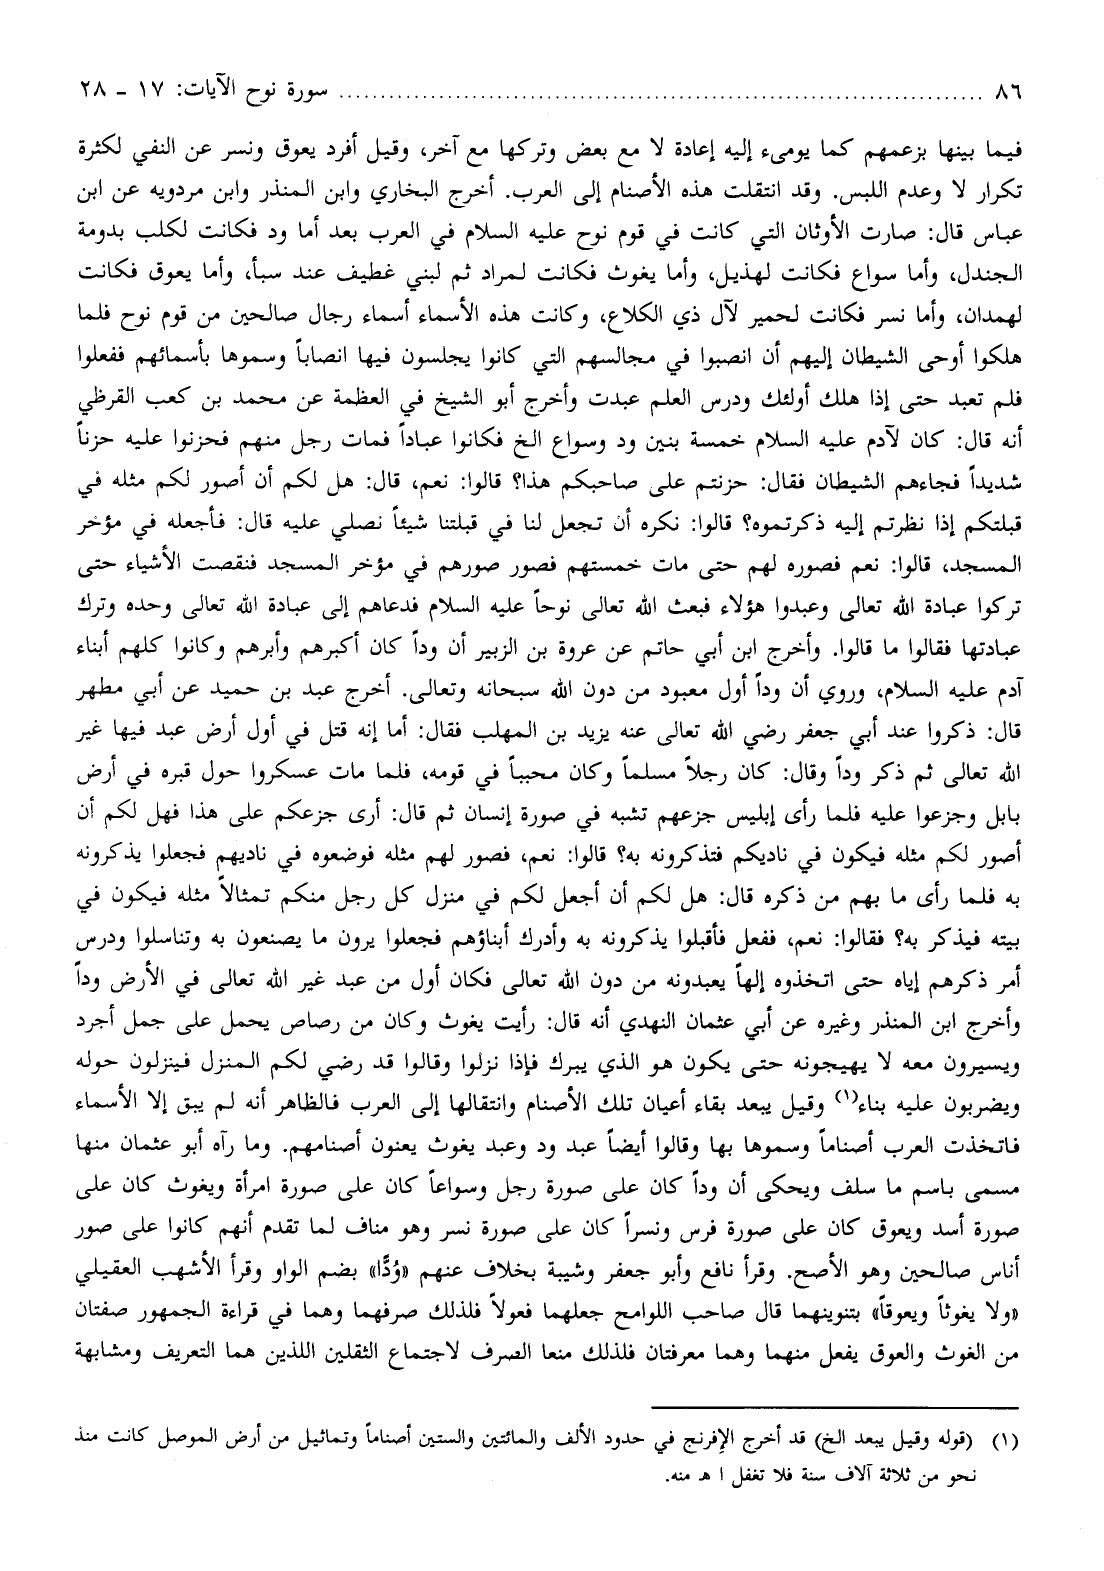 ٨٦ ........................................................................ سورة نوح الآيات: ١٧ - ٢٨
فيما بينها بزعمهم كما يومىء إليه إعادة لا مع بعض وتركها مع آخر، وقيل أفرد يعوق ونسر عن النفي لكثرة
تكرار لا وعدم اللبس. وقد انتقلت هذه الأصنام إلى العرب. أخرج البخاري وابن المنذر وابن مردويه عن ابن
عباس قال: صارت الأوثان التي كانت في قوم نوح عليه السلام في العرب بعد أما ود فكانت لكلب بدومة
الجندل، وأما سواع فكانت لهذيل، وأما يغوث فكانت لمراد ثم لبني غطيف عند سبأ، وأما يعوق فكانت
لهمدان، وأما نسر فكانت لحمير لآل ذي الكلاع، وكانت هذه الأسماء أسماء رجال صالحين من قوم نوح فلما
هلكوا أوحى الشيطان إليهم أن انصبوا في مجالسهم التي كانوا يجلسون فيها انصاباً وسموها بأسمائهم ففعلوا
فلم تعبد حتى إذا هلك أولئك ودرس العلم عبدت وأخرج أبو الشيخ في العظمة عن محمد بن كعب القرظي
أنه قال: كان لآدم عليه السلام خمسة بنين ود وسواع الخ فكانوا عباداً فمات رجل منهم فحزنوا عليه حزناً
شديداً فجاءهم الشيطان فقال: حزنتم على صاحبكم هذا؟ قالوا: نعم، قال: هل لكم أن أصور لكم مثله في
قبلتكم إذا نظرتم إليه ذكرتموه؟ قالوا: نكره أن تجعل لنا في قبلتنا شيئاً نصلي عليه قال: فأجعله في مؤخر
المسجد، قالوا: نعم فصوره لهم حتى مات خمستهم فصور صورهم في مؤخر المسجد فنقصت الأشياء حتى
تركوا عبادة الله تعالى وعبدوا هؤلاء فبعث الله تعالى نوحاً عليه السلام فدعاهم إلى عبادة الله تعالى وحده وترك
عبادتها فقالوا ما قالوا. وأخرج ابن أبي حاتم عن عروة بن الزبير أن وداً كان أكبرهم وأبرهم وكانوا كلهم أبناء
آدم عليه السلام، وروي أن وداً أول معبود من دون الله سبحانه وتعالى. أخرج عبد بن حميد عن أبي مطهر
قال: ذكروا عند أبي جعفر رضي الله تعالى عنه يزيد بن المهلب فقال: أما إنه قتل في أول أرض عبد فيها غير
الله تعالى ثم ذكر وداً وقال: كان رجلاً مسلماً وكان محبباً في قومه، فلما مات عسكروا حول قبره في أرض
بابل وجزعوا عليه فلما رأى إبليس جزعهم تشبه في صورة إنسان ثم قال: أرى جزعكم على هذا فهل لكم أن
أصور لكم مثله فيكون في ناديكم فتذكرونه به؟ قالوا: نعم، فصور لهم مثله فوضعوه في ناديهم فجعلوا يذكرونه
به فلما رأى ما بهم من ذكره قال: هل لكم أن أجعل لكم في منزل كل رجل منكم تمثالاً مثله فيكون في
بيته فيذكر به؟ فقالوا: نعم، ففعل فأقبلوا يذكرونه به وأدرك أبناؤهم فجعلوا يرون ما يصنعون به وتناسلوا ودرس
أمر ذكرهم إياه حتى اتخذوه إلهاً يعبدونه من دون الله تعالى فكان أول من عبد غير الله تعالى في الأرض وداً
وأخرج ابن المنذر وغيره عن أبي عثمان النهدي أنه قال: رأيت يغوث وكان من رصاص يحمل على جمل أجرد
ويسيرون معه لا يهيجونه حتى يكون هو الذي يبرك فإذا نزلوا وقالوا قد رضي لكم المنزل فينزلون حوله
ويضربون عليه بناء(١) وقيل يبعد بقاء أعيان تلك الأصنام وانتقالها إلى العرب فالظاهر أنه لم يبق إلا الأسماء
فاتخذت العرب أصناماً وسموها بها وقالوا أيضاً عبد ود وعبد يغوث يعنون أصنامهم. وما رآه أبو عثمان منها
مسمى باسم ما سلف ويحكى أن وداً كان على صورة رجل وسواعاً كان على صورة امرأة ويغوث كان على
صورة أسد ويعوق كان على صورة فرس ونسراً كان على صورة نسر وهو مناف لما تقدم أنهم كانوا على صور
أناس صالحين وهو الأصح. وقرأ نافع وأبو جعفر وشيبة بخلاف عنهم «وُدًّا» بضم الواو وقرأ الأشهب العقيلي
«ولا يغوثاً ويعوقاً» بتنوينهما قال صاحب اللوامح جعلهما فعولاً فلذلك صرفهما وهما في قراءة الجمهور صفتان
من الغوث والعوق يفعل منهما وهما معرفتان فلذلك منعا الصرف لاجتماع الثقلين اللذين هما التعريف ومشابهة
(١) (قوله وقيل يبعد الخ) قد أخرج الإفرنج في حدود الألف والمائتين والستين أصناماً وتماثيل من أرض الموصل كانت منذ
نحو من ثلاثة آلاف سنة فلا تغفل ا هـ منه.